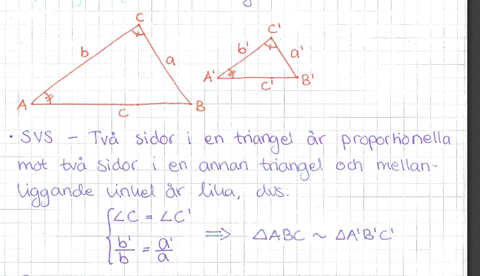 C
b
a
A
B
c
C'
b'
a'
A'
B'
c'
• SVS – Två sidor i en triangel är proportionella
mot två sidor i en annan triangel och mellan-
liggande vinkel är lika, dvs.
∠C = ∠C'
b'/b = a'/a ⇒ △ABC ~ △A'B'C'